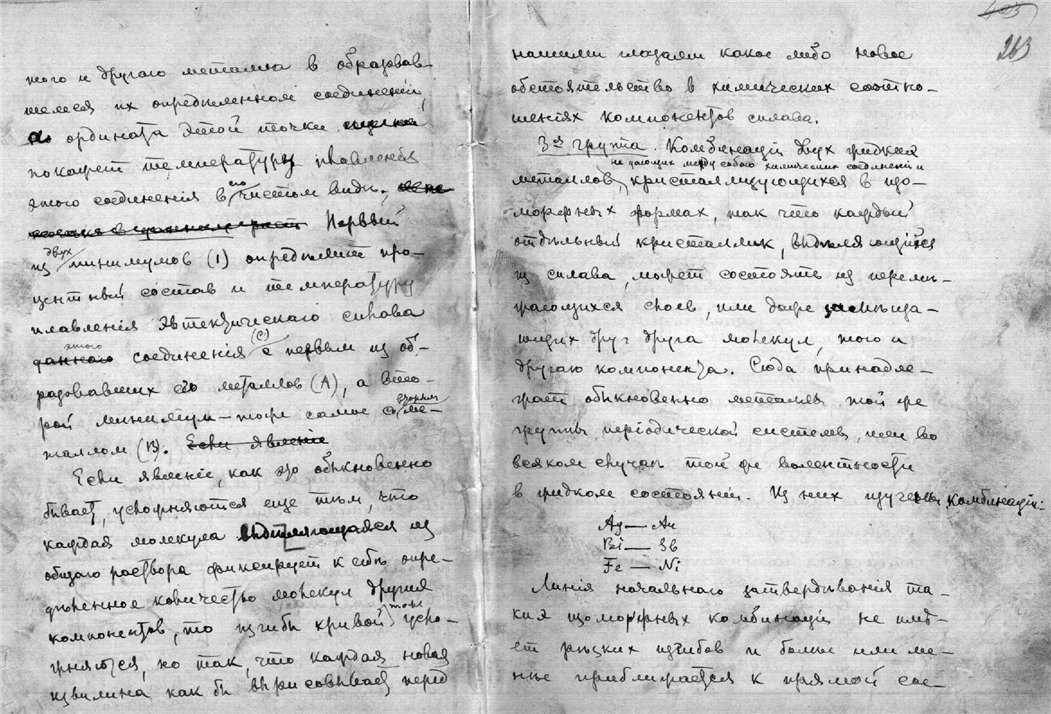 того и другаго металла в образовав-
шемся их определенном соединении,
а ордината этой точки
покажет температуру плавления
этого соединения в чистом виде.
Первый
из двух минимумов (1) определяет про-
центный состав и температуру
плавления эвтектическаго сплава
этого соединения (C) с первым из об-
разовавших его металлов (A), а вто-
рой минимум — тоже самое с другим ме-
таллом (B). Если явление
Если явление, как это обыкновенно
бывает, усложняются еще тем, что
каждая молекула выделяющаяся из
общаго раствора фиксирует к себе опре-
деленное количество молекул другия
компонентов, то изгибы кривой тоже усло-
жняются, но так, что каждая новая
извилина как бы вырисовывает перед
403
263
нашими глазами какое либо новое
обстоятельство в химических соотно-
шениях компонентов сплава.
3ая группа. Комбинации двух жидких
не дающих между собою химических соединений
металлов, кристаллизующихся в изо-
морфных формах, так что каждый
отдельный кристаллик, выделяющийся
из сплава, может состоять из перемы-
гающихся слоев, или даже замеща-
ющих друг друга молекул, того и
другаго компонента. Сюда принадле-
жат обыкновенно металлы той же
группы периодической системы, или во
всяком случае той же валентности
в жидком состоянии. Из них изучены комбинации:
Ag — Au
Bi — Sb
Fe — Ni
Линія начальнаго затвердеванія та-
кия изоморфных комбинаций не име-
ет резких изгибов и более или ме-
нее приближается к прямой сое-